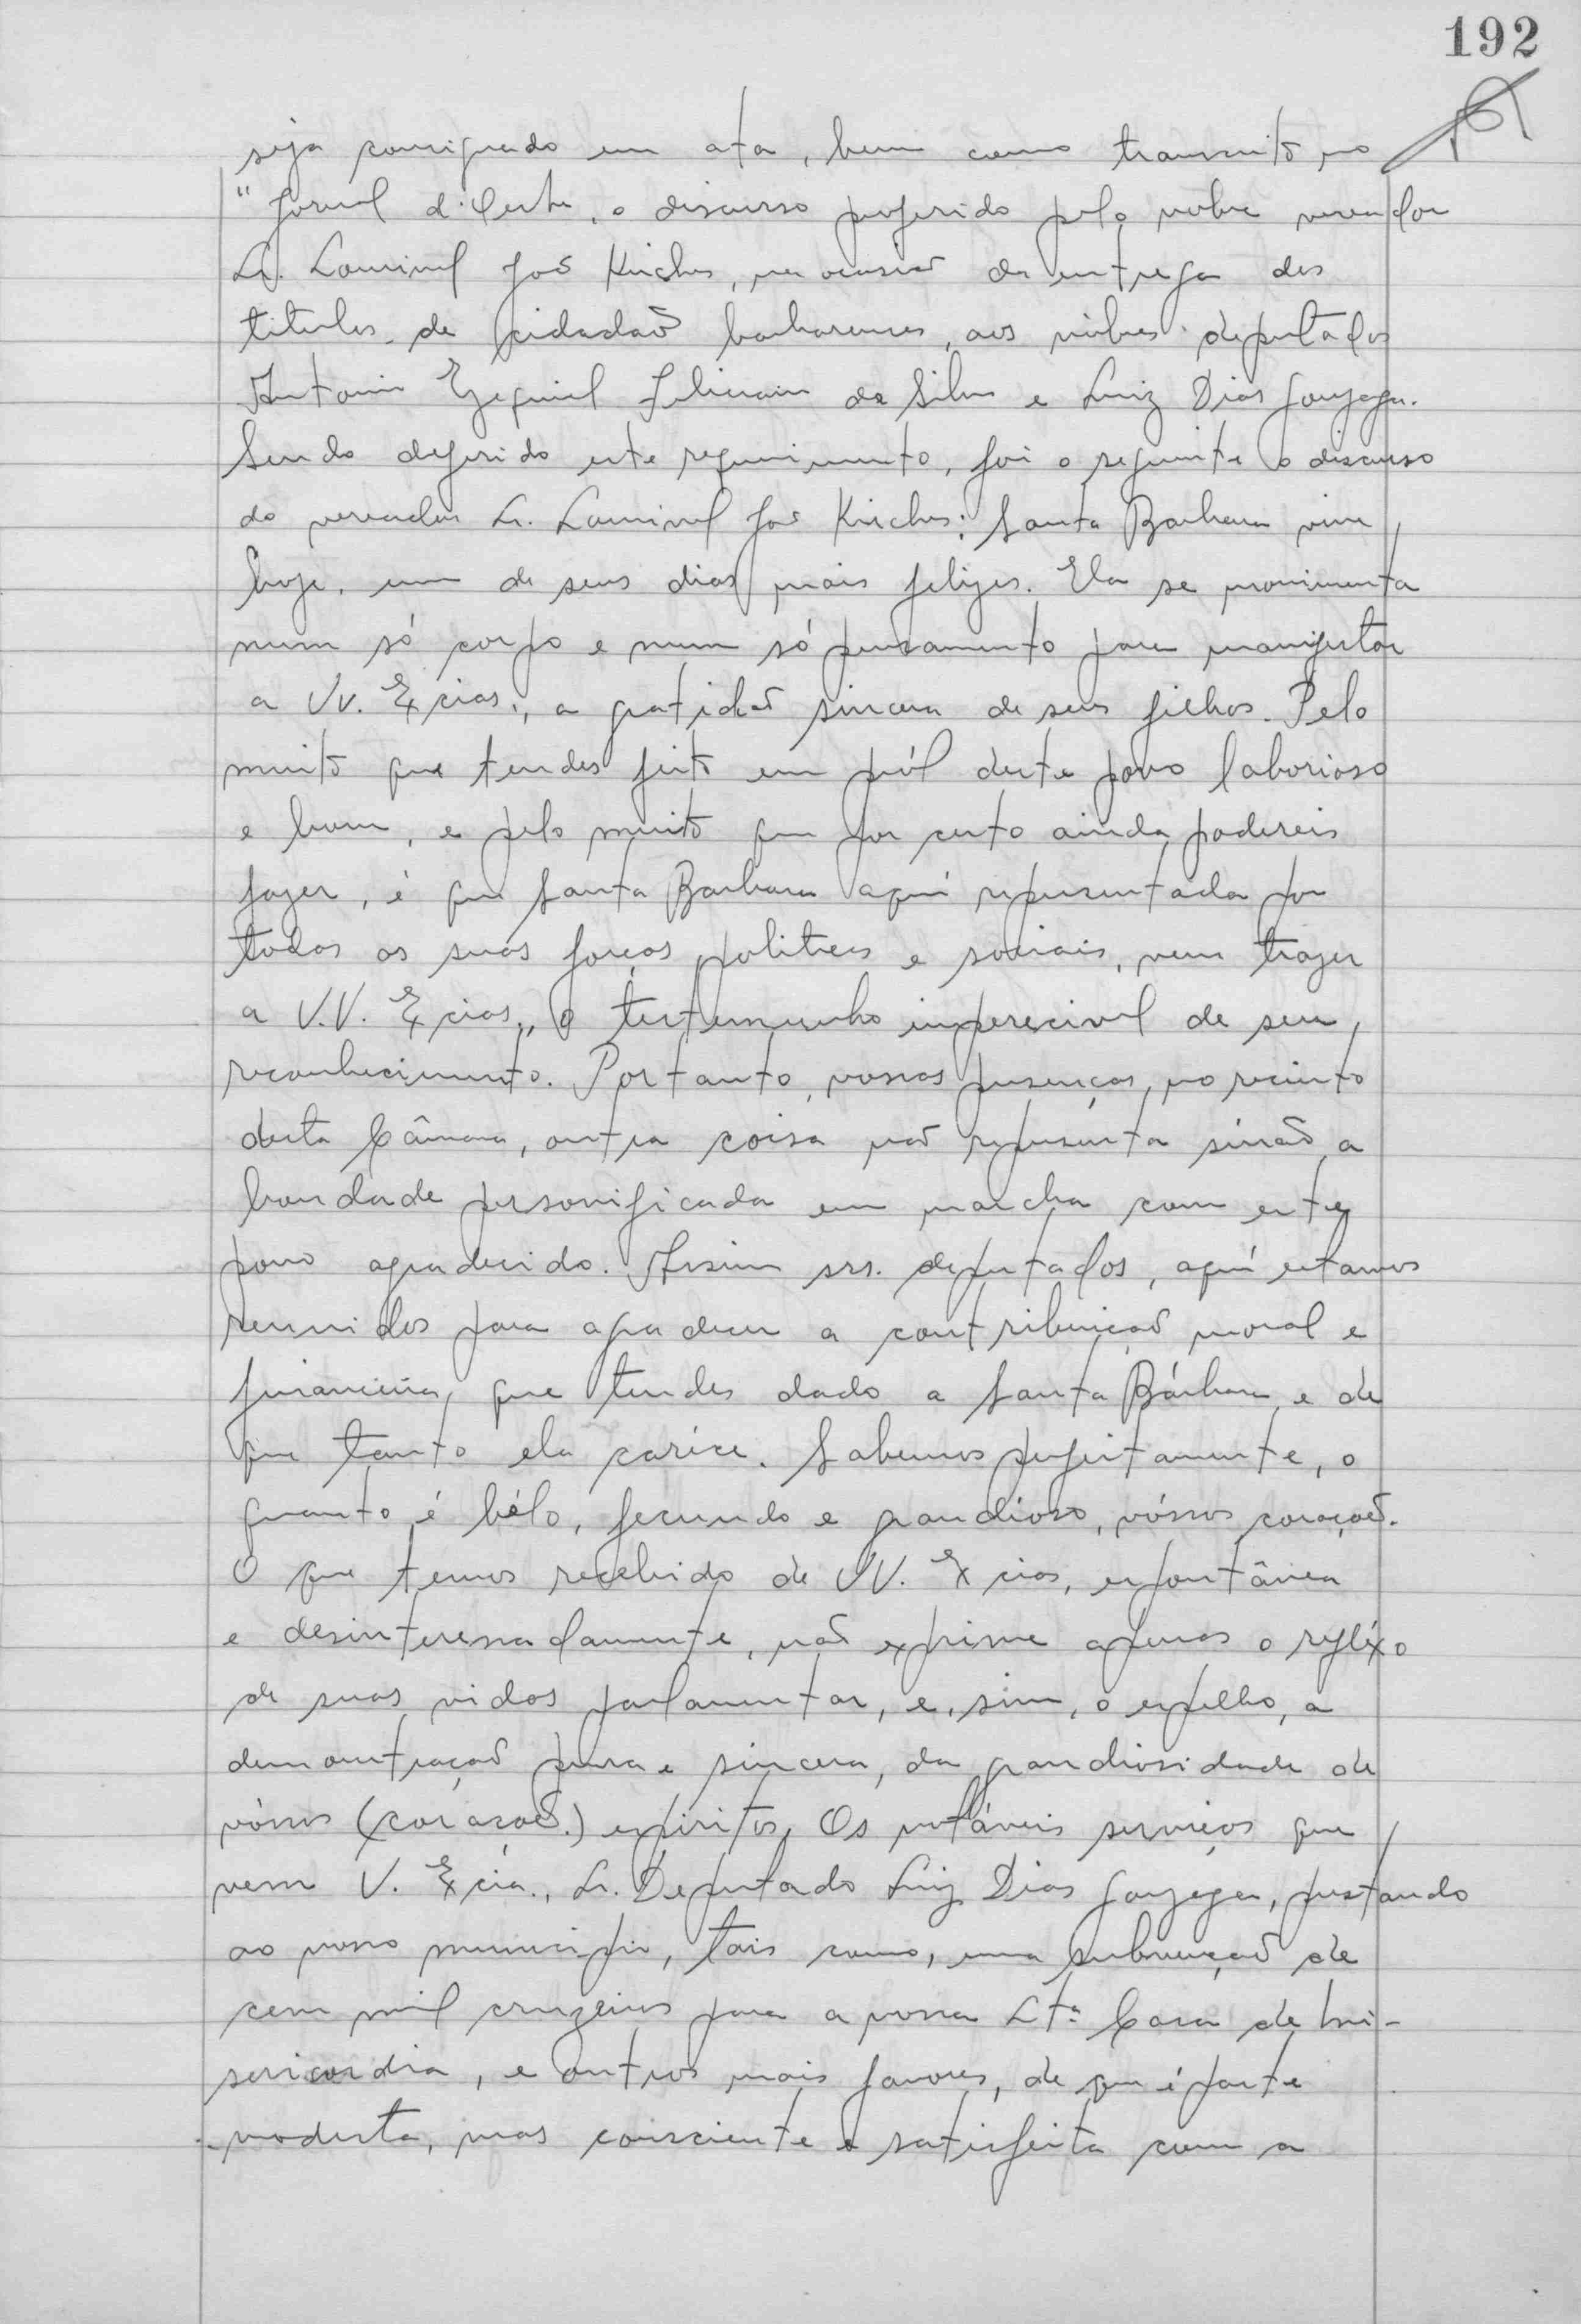 192
seja consignado em ata, bem como transcrito no
"Jornal d'Oeste, o discurso proferido pelo nobre vereador
Sr. Lourival José Kirches, na ocasião da entrega dos
titulos de cidadão barbarenses, aos nobres deputados
Antonio Ezequiel Feliciano da Silva e Luiz Dias Gonzaga.
Sendo deferido este requerimento, foi o seguinte o discurso
do vereador Sr. Lourival José Kirches: Santa Barbara vive
hoje, um de seus dias mais felizes. Ela se movimenta
num só corpo e num só pensamento para manifestar
a Vv. Excias., a gratidão sincera de seus filhos. Pelo
muito que tendes feito em pról deste povo laborioso
e bom, e pelo muito que por certo ainda podereis
fazer, é que Santa Barbara aquí representada por
todas as suas forças politicas e sociais, vem trazer
a V.V. Excias., o testemunho imperecivel de seu
reconhecimento. Portanto, vossas presenças, no recinto
desta Câmara, outra coisa não represênta sinão a
bondade personificada em marcha com este
povo agradecido. Assim srs. deputados, aquí estamos
reunidos para agradecer a contribuição moral e
financeira, que tendes dado a Santa Bárbara e de
que tanto ela caréce. Sabemos perfeitamente, o
quanto é bélo, fecundo e grandioso, vóssos coração.
O que temos recebido de VV. Excias, espontânea
e desinteressadamente, não exprime apenas o refléxo
de suas vidas parlamentar, e, sim, o espelho, a
demonstração pura e sincera, da grandiosidade de
vóssos (coração.) espiritos. Os notáveis serviços que
vem V. Excia., Sr. Deputado Luiz Dias Gonzaga, prestando
ao nosso municipio, tais como, uma subvenção de
cem mil cruzeiros para a nossa Sta. Casa de Mi-
sericordia, e outros mais favores, de que é parte
modesta, mas consciente e satisfeita com a